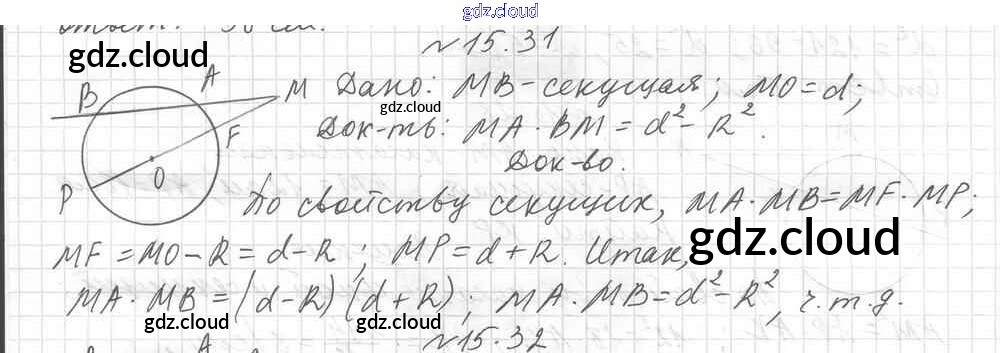 gdz.cloud
см.
gdz.cloud
№15.31
B A M F O P
Дано: MB-секущая; MO=d,
gdz.cloud
Док-ть: MA·BM=d²-R².
Док-во.
По свойству секущих, MA·MB=MF·MP;
MF=MO-R=d-R; MP=d+R. Итак,
gdz.cloud
MA·MB=(d-R)(d+R); MA·MB=d²-R², ч.т.д.
gdz.cloud gdz.cloud
№15.32
A